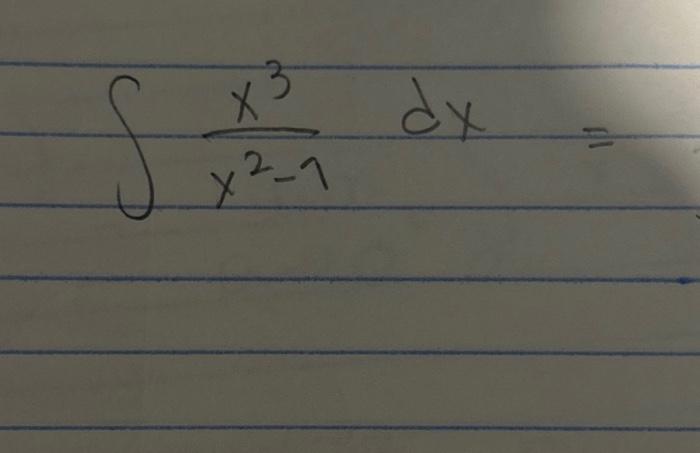 ∫ x³/(x²-1) dx =